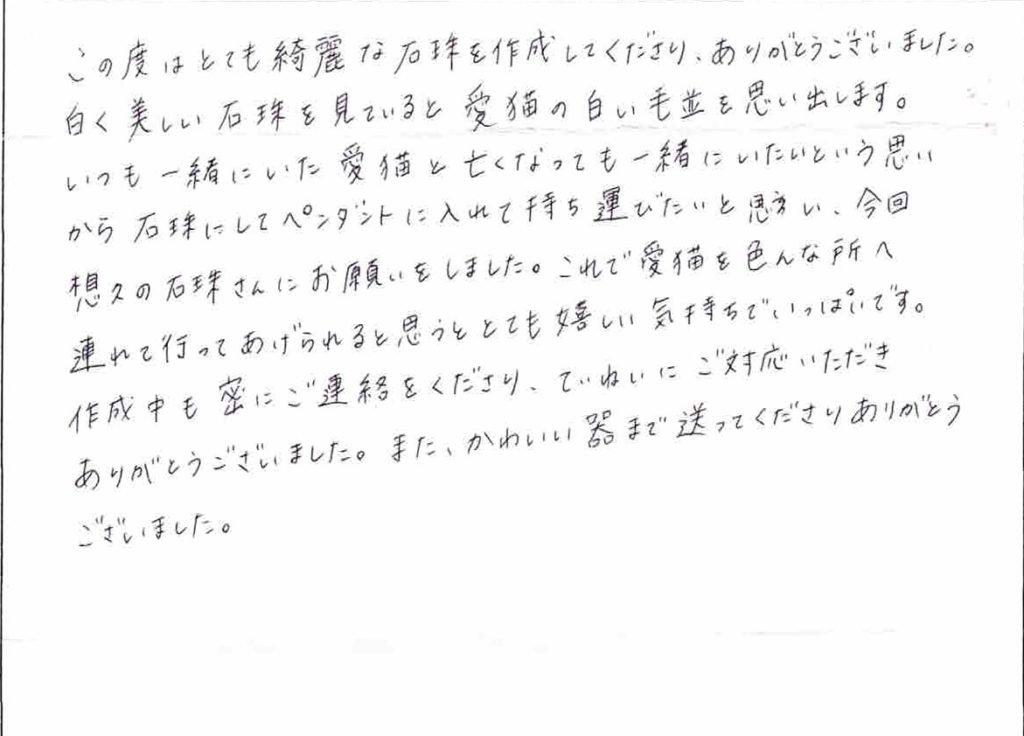 この度はとても綺麗な石珠を作成してくださり、ありがとうございました。
白く美しい石珠を見ていると愛猫の白い毛並を思い出します。
いつも一緒にいた愛猫と亡くなっても一緒にいたいという思い
から石珠にしてペンダントに入れて持ち運びたいと思い、今回
想久の石珠さんにお願いをしました。これで愛猫を色んな所へ
連れて行ってあげられると思うととても嬉しい気持ちでいっぱいです。
作成中も密にご連絡をくださり、ていねいにご対応いただき
ありがとうございました。また、かわいい器まで送ってくださりありがとう
ございました。